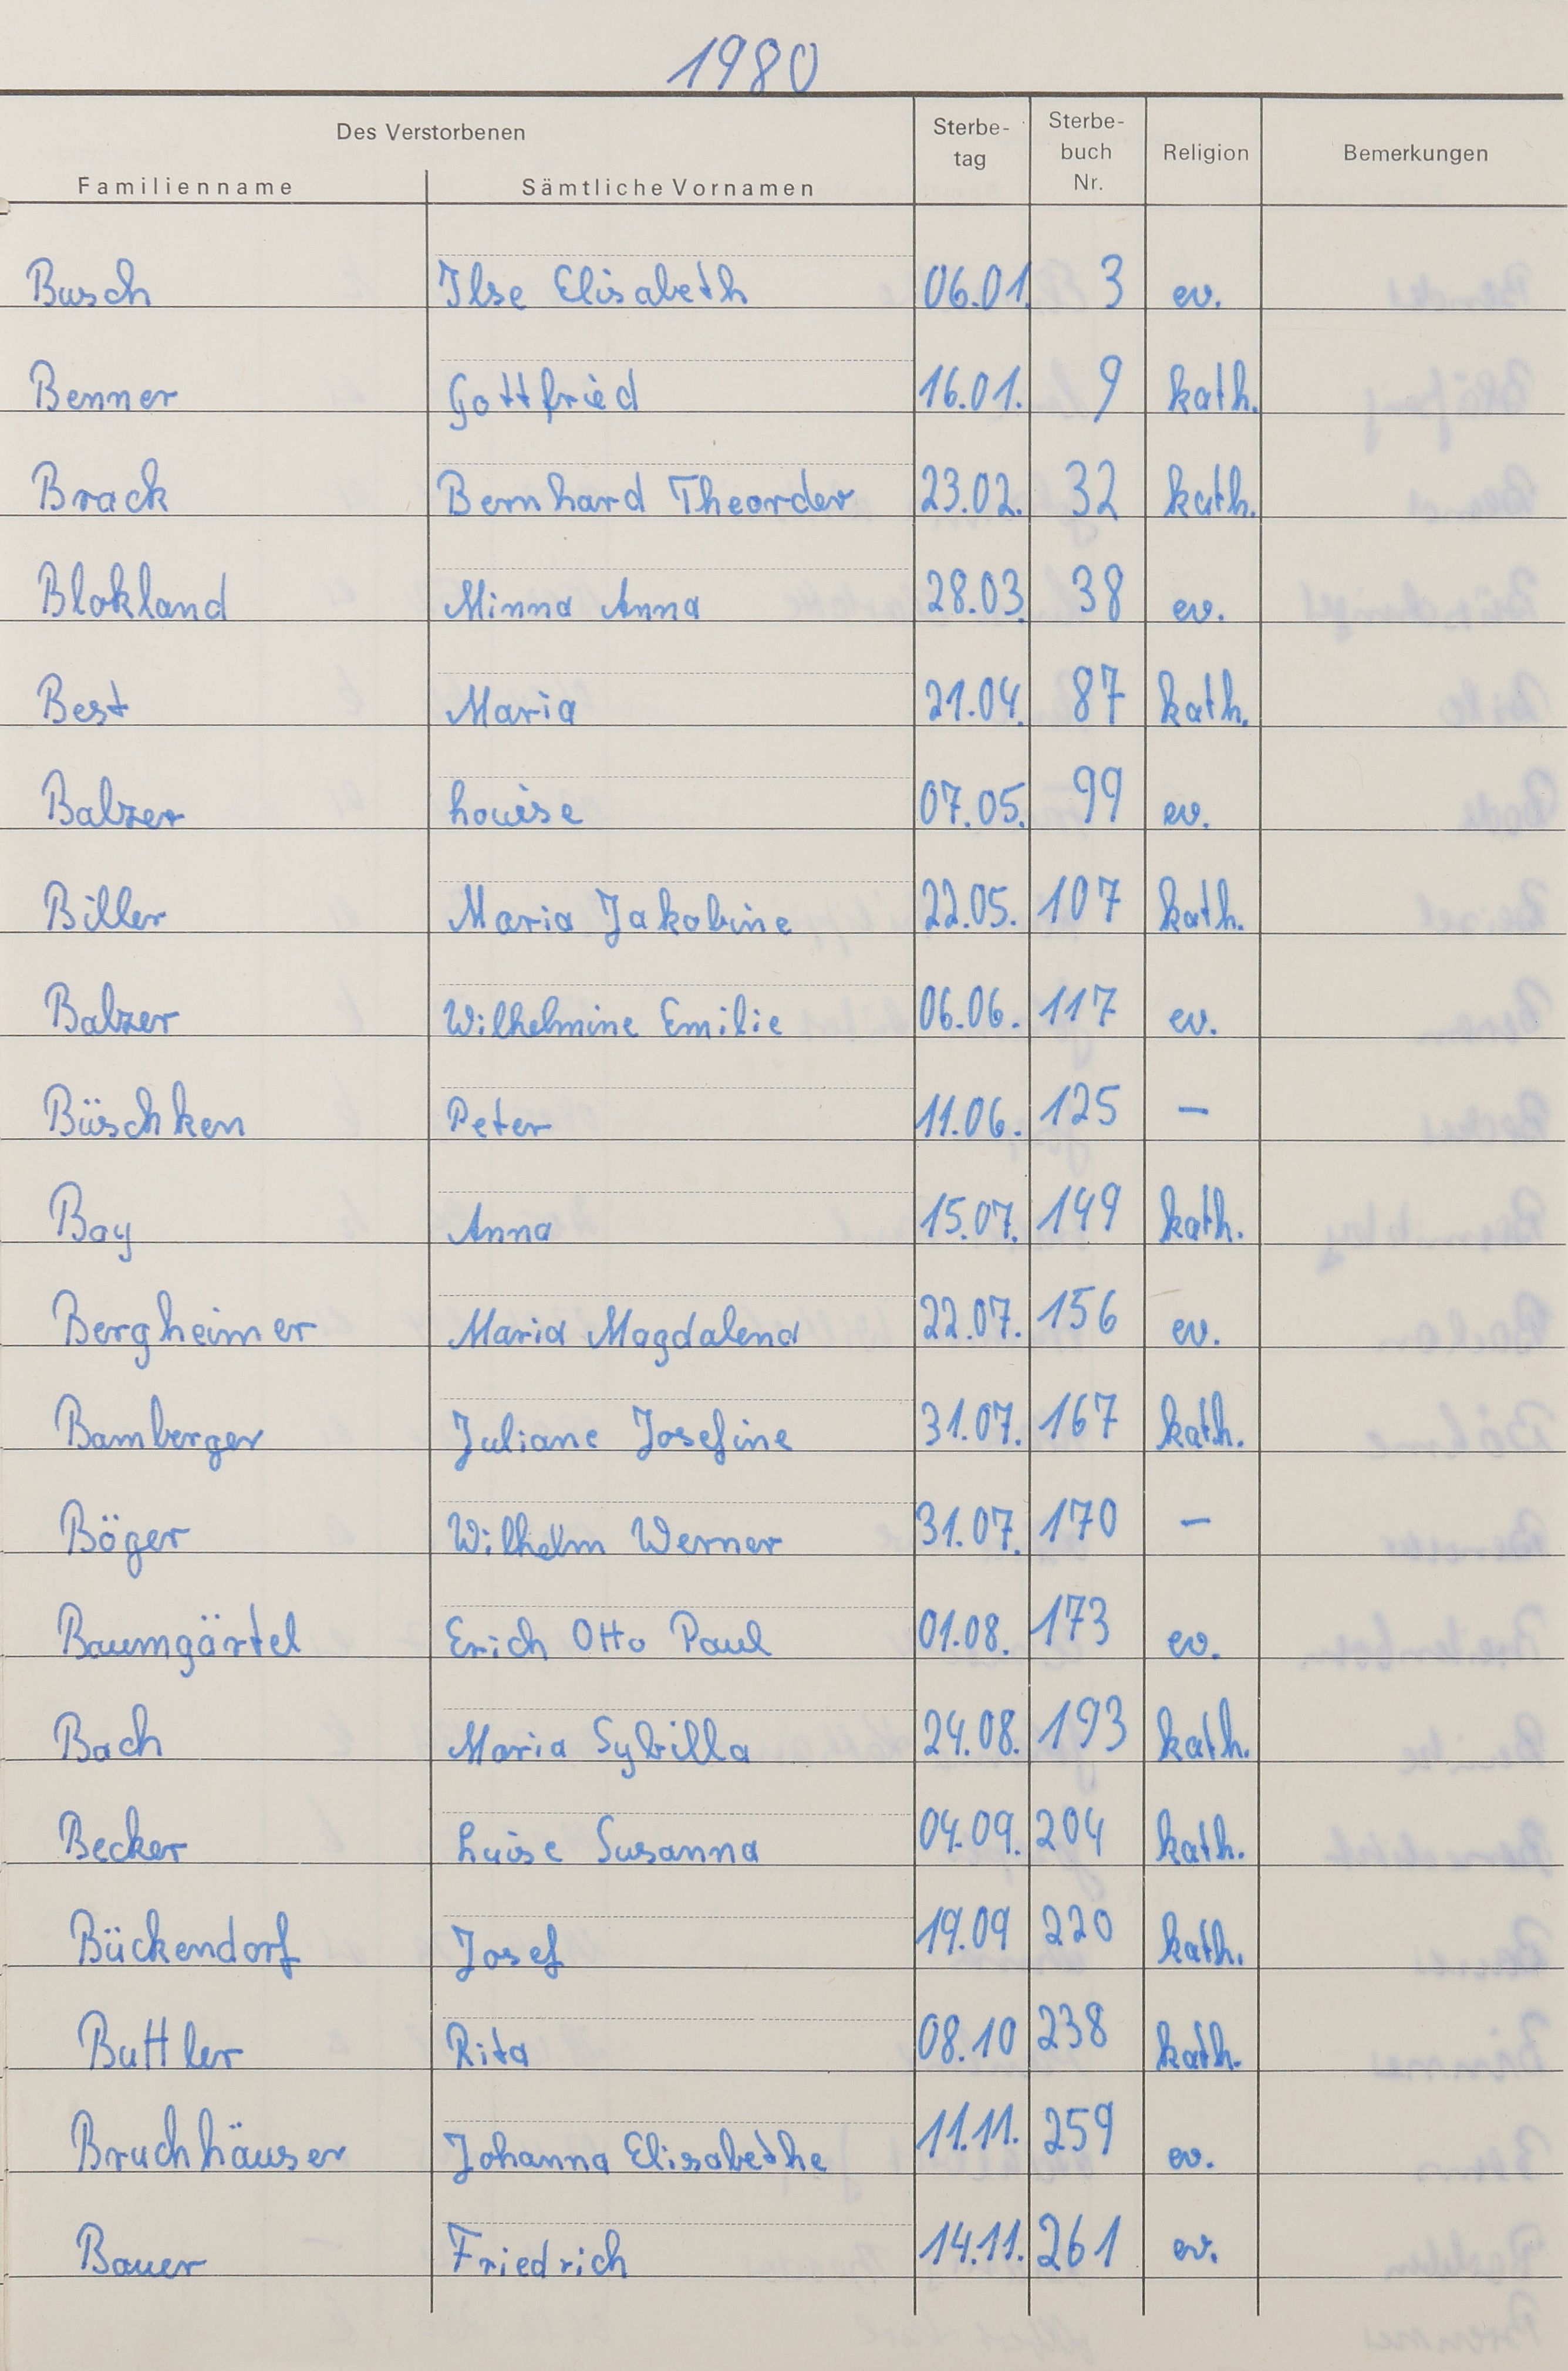 1980
Des Verstorbenen
Familienname Sämtliche Vornamen Sterbe-tag Sterbe-buch Nr. Religion Bemerkungen
Busch Ilse Elisabeth 06.01. 3 ev.
Benner Gottfried 16.01. 9 kath.
Brack Bernhard Theorder 23.02. 32 kath.
Blokland Minna Anna 28.03. 38 ev.
Best Maria 21.04. 87 kath.
Balzer Louise 07.05. 99 ev.
Biller Maria Jakobine 22.05. 107 kath.
Balzer Wilhelmine Emilie 06.06. 117 ev.
Büschken Peter 11.06. 125 –
Bay Anna 15.07. 149 kath.
Bergheimer Maria Magdalena 22.07. 156 ev.
Bamberger Juliane Josefine 31.07. 167 kath.
Böger Wilhelm Werner 31.07. 170 –
Baumgärtel Erich Otto Paul 01.08. 173 ev.
Bach Maria Sybilla 24.08. 193 kath.
Becker Luise Susanna 04.09. 204 kath.
Bückendorf Josef 19.09 220 kath.
Buttler Rita 08.10 238 kath.
Bruchhäuser Johanna Elisabethe 11.11. 259 ev.
Bauer Friedrich 14.11. 261 ev.